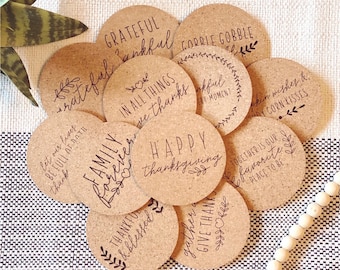 GRATEFUL
&
thankful
GOBBLE GOBBLE
grateful
IN ALL THINGS
give thanks
thankful
MOMENT
wishes &
KISSES
let our hearts
BE FULL OF BOTH
thanks
FAMILY
Forever
HAPPY
thanksgiving
TOGETHER IS OUR
favorite
PLACE TO BE
THANKFUL
& blessed
gather
GIVE THANKS